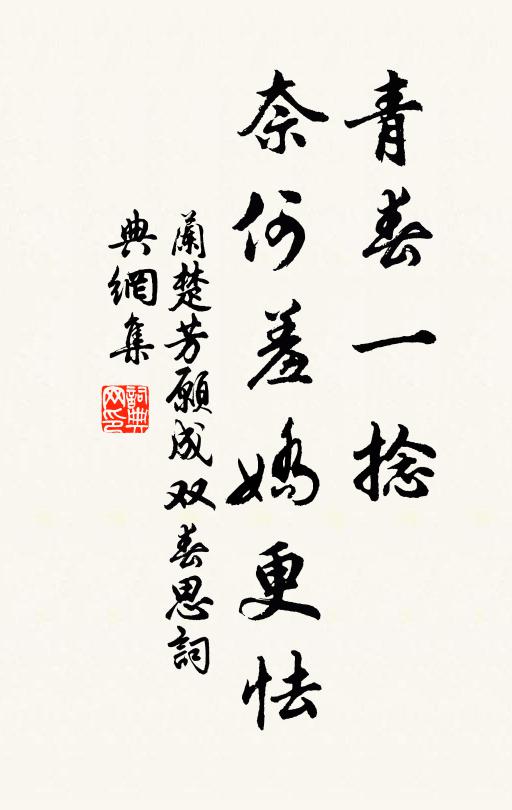 青春一捻
奈何羞嬌更怯
蘭楚芳願成双春思詞
典網集
詞典
网印